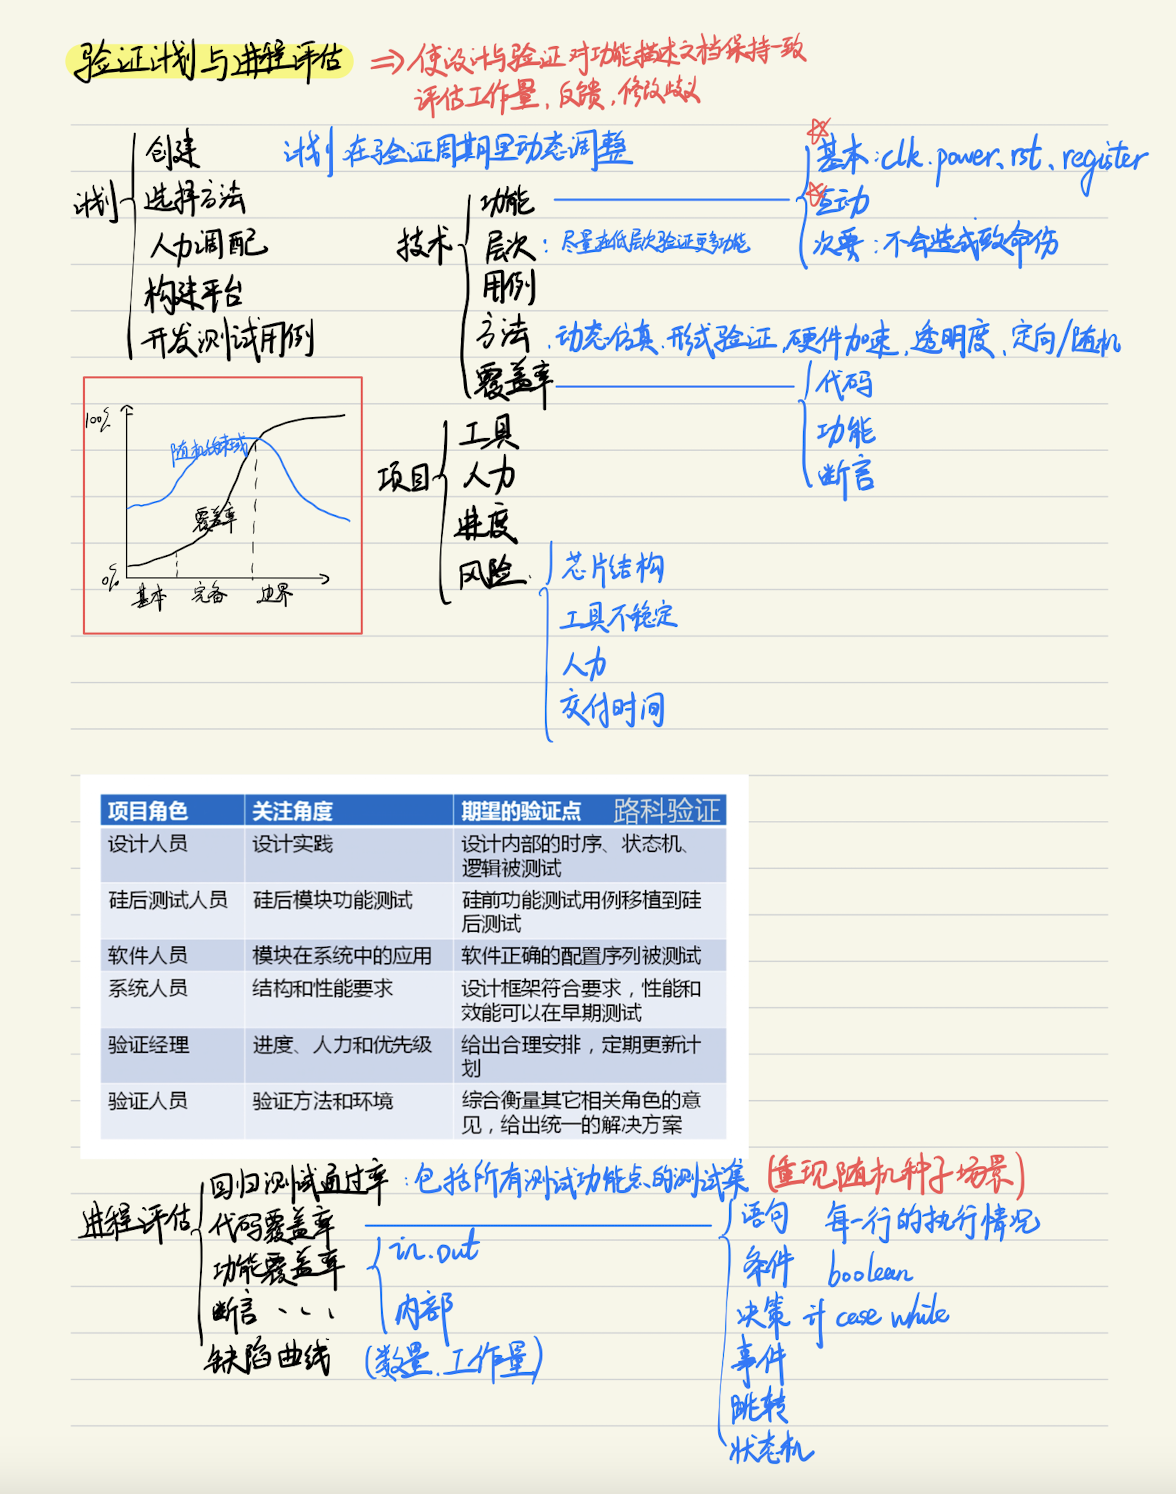 验证计划与进程评估 => 使设计与验证对功能描述文档保持一致
评估工作量,反馈,修改歧义
计划
创建
选择方法
人力调配
构建平台
开发测试用例
计划在验证周期里动态调整
技术
功能
基本:clk.power、rst、register
互动
次要:不会造成致命伤
层次:尽量在低层次验证更多功能
用例
方法、动态仿真、形式验证、硬件加速、透明度、定向/随机
覆盖率
代码
功能
断言
项目
工具
人力
进度
风险
芯片结构
工具不稳定
人力
交付时间
100%
随机约束域
覆盖率
0%
基本 完备 边界
项目角色 关注角度 期望的验证点 路科验证
设计人员 设计实践 设计内部的时序、状态机、
逻辑被测试
硅后测试人员 硅后模块功能测试 硅前功能测试用例移植到硅
后测试
软件人员 模块在系统中的应用 软件正确的配置序列被测试
系统人员 结构和性能要求 设计框架符合要求,性能和
效能可以在早期测试
验证经理 进度、人力和优先级 给出合理安排,定期更新计
划
验证人员 验证方法和环境 综合衡量其它相关角色的意
见,给出统一的解决方案
进程评估
回归测试通过率:包括所有测试功能点的测试集(重现随机种子场景)
代码覆盖率
语句 每一行的执行情况
条件 boolean
决策 case while
事件
跳转
状态机
功能覆盖率
in.out
内部
断言、、、
缺陷曲线(数量、工作量)